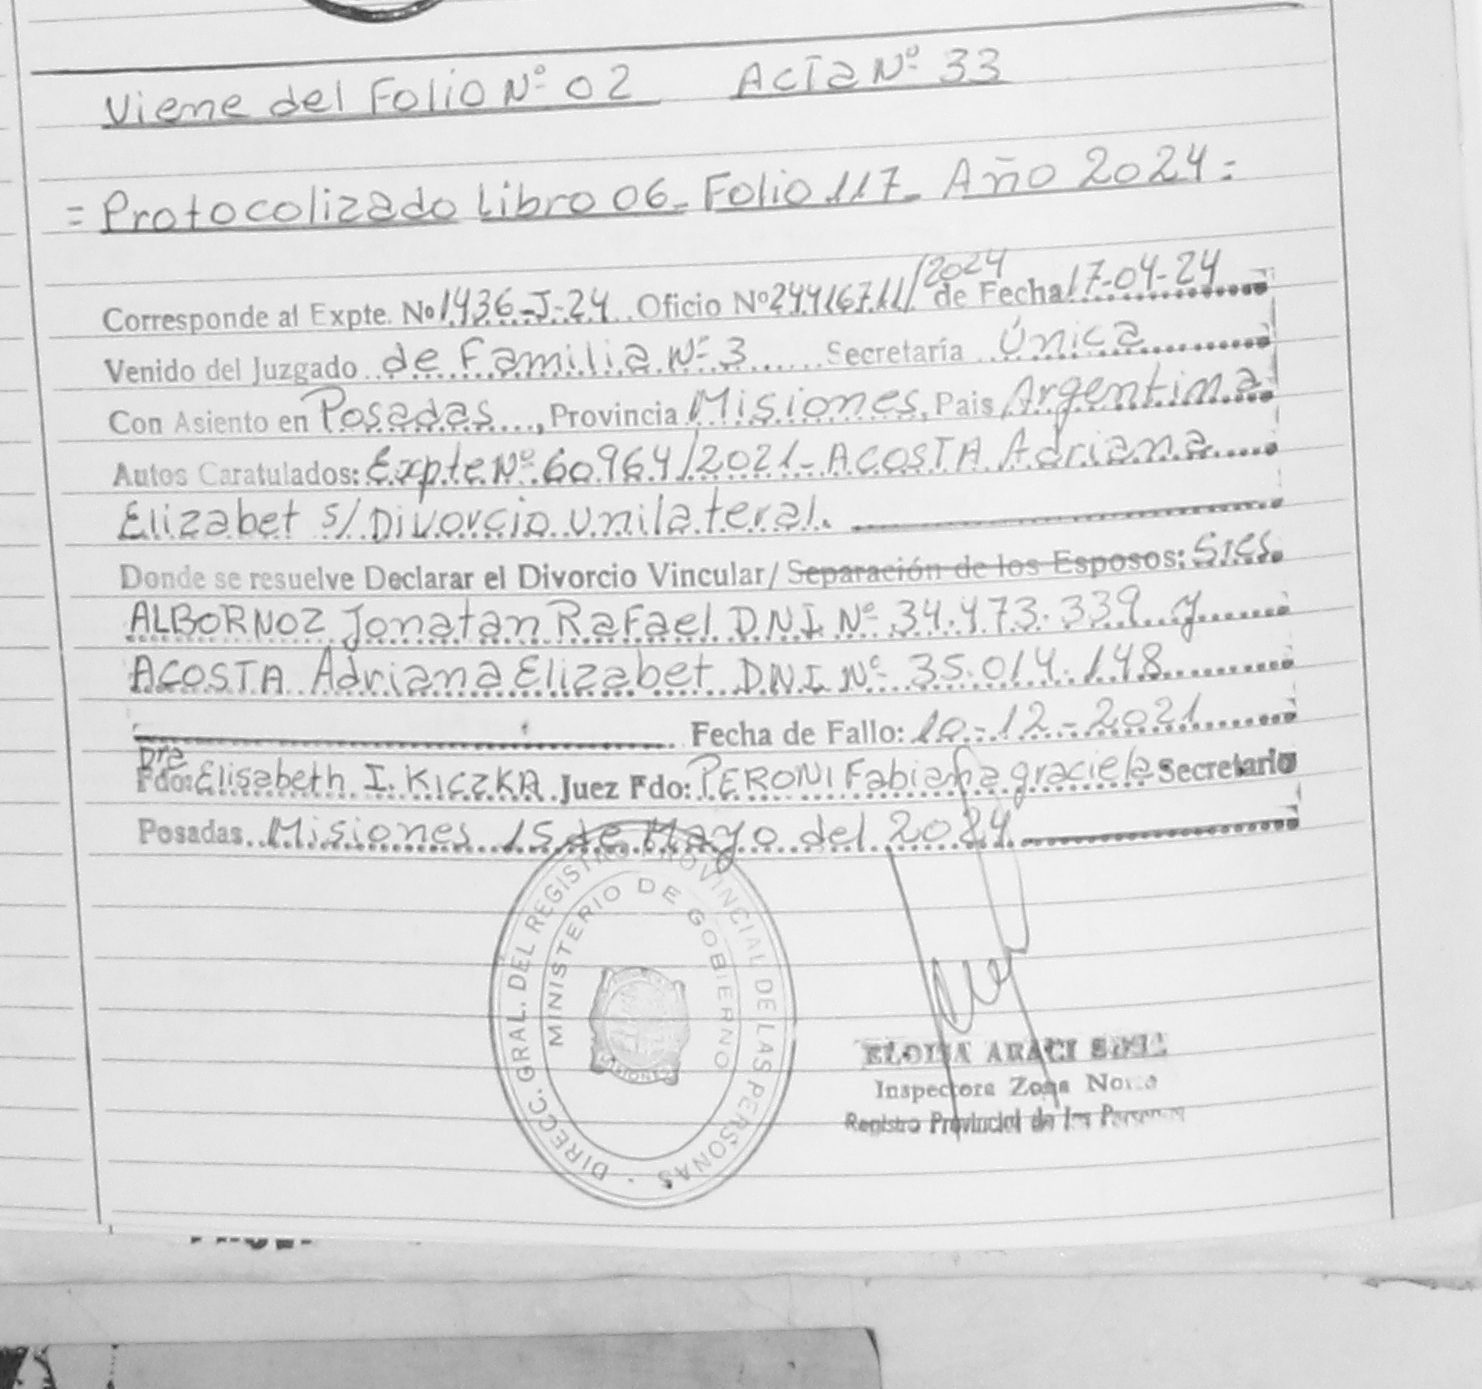 Viene del Folio Nº 02 Acta Nº 33
= Protocolizado Libro 06_ Folio 117_ Año 2024 =
Corresponde al Expte. Nº 1436-J-24 Oficio Nº 24416711/2024 de Fecha 17-04-24
Venido del Juzgado de Familia Nº 3 Secretaría Única
Con Asiento en Posadas, Provincia Misiones, Pais Argentina
Autos Caratulados: Expte Nº 60964/2021_ ACOSTA Adriana
Elizabet s/ Divorcio Unilateral.
Donde se resuelve Declarar el Divorcio Vincular/ Separación de los Esposos: Sres.
ALBORNOZ Jonatan Rafael D.N.I. Nº 34.473.339 y
ACOSTA Adriana Elizabet D.N.I. Nº 35.014.148
Fecha de Fallo: 10-12-2021
Dra
Fdo: Elisabeth I. KICZKA Juez Fdo: PERONI Fabiana graciela Secretario
Posadas Misiones 15 de Mayo del 2024
DIRECC. GRAL. DEL REGISTRO PROVINCIAL DE LAS PERSONAS
MINISTERIO DE GOBIERNO
MISIONES
ARACI
Inspectora Zona Norte
Registro Provincial de las Personas